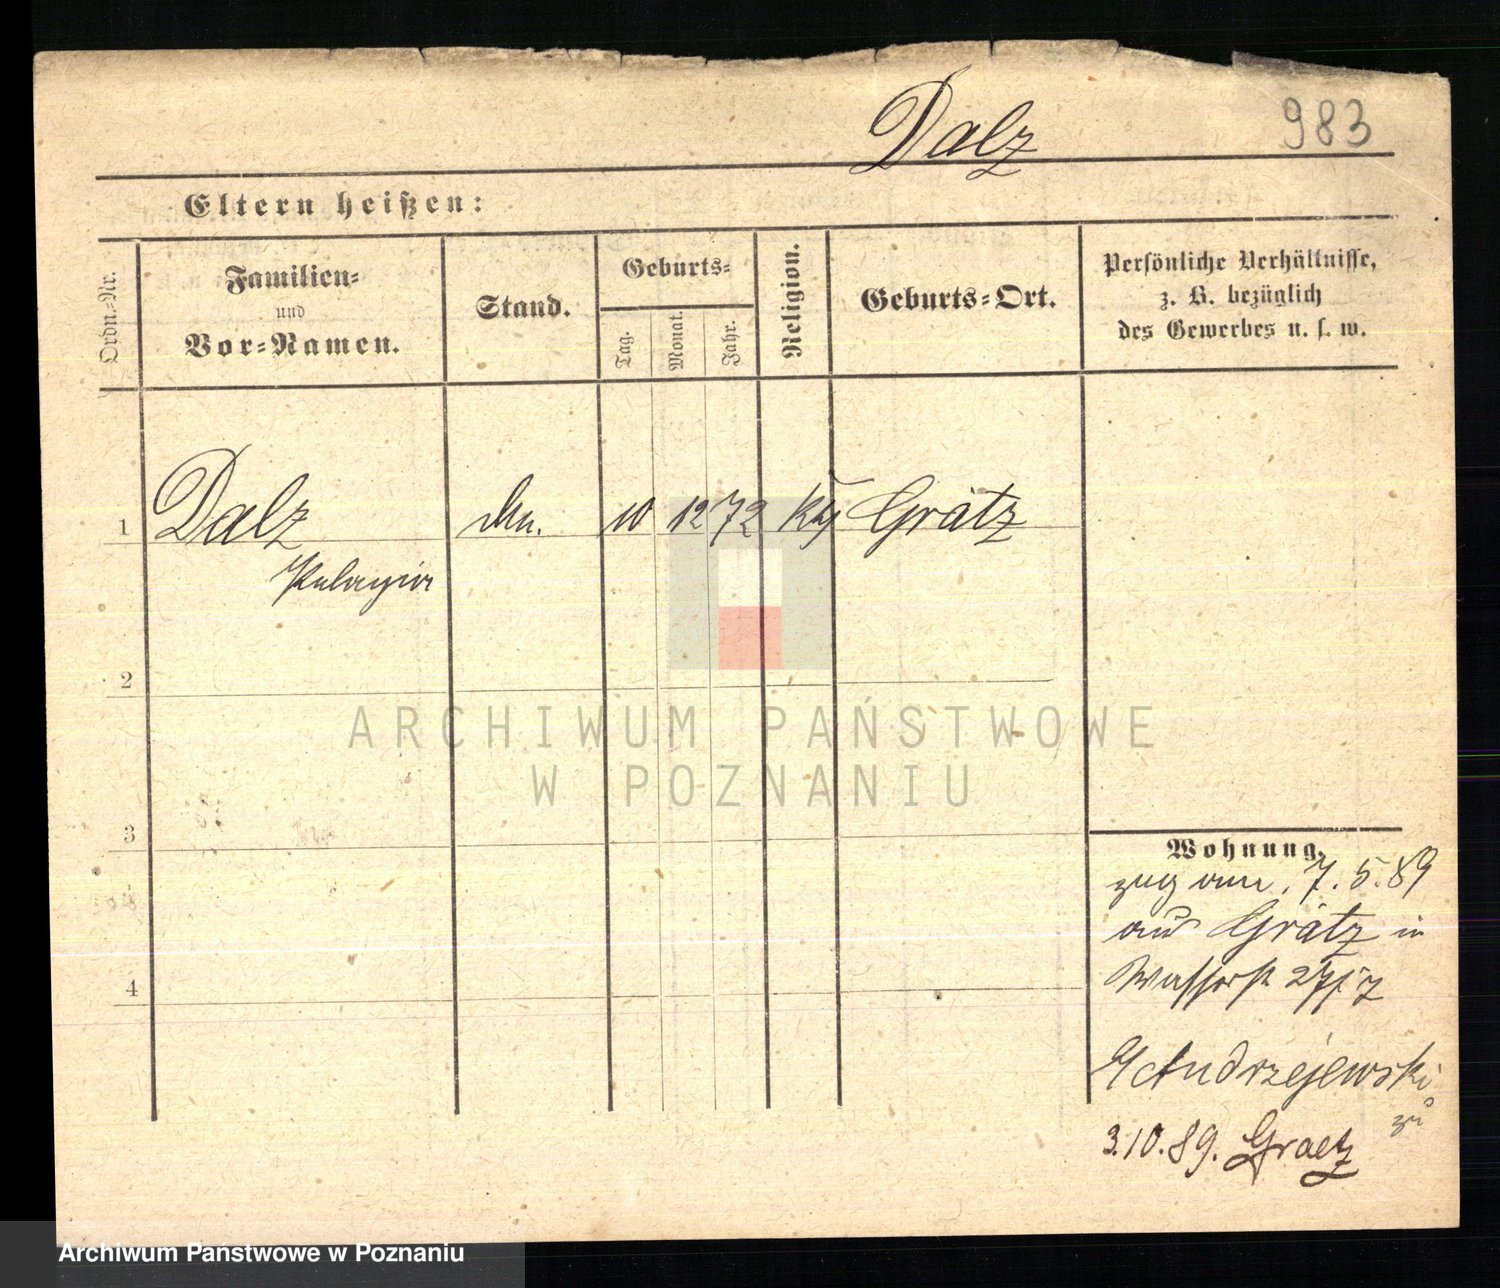 Dalz
983
Eltern heißen:
Ordn.-Nr.
Familien-
und
Vor-Namen.
Stand.
Geburts-
Tag.
Monat.
Jahr.
Religion.
Geburts-Ort.
Persönliche Verhältnisse,
z. B. bezüglich
des Gewerbes u. s. w.
1 Dalz 10 12 72 Grätz
Pelagia
2
ARCHIWUM PAŃSTWOWE
W POZNANIU
3
4
Wohnung.
zug am 7.5.89
aus Grätz in
Wasserst 27
Andrzejewski
zu
3.10.89. Graetz
Archiwum Państwowe w Poznaniu